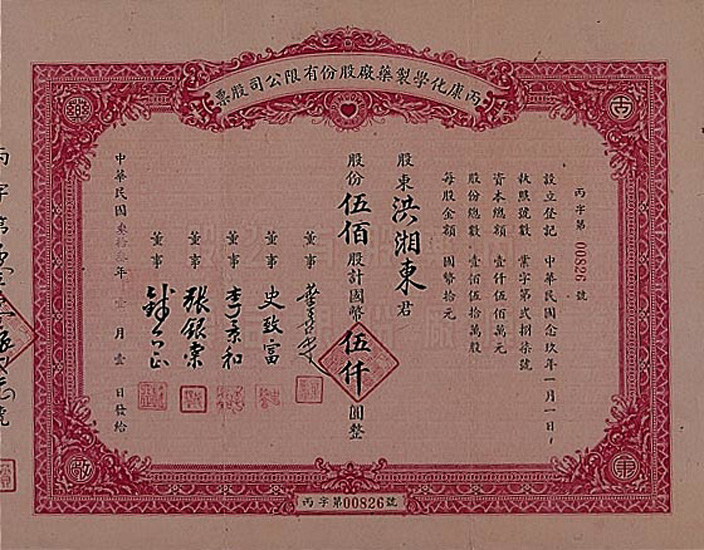 丙康化學製藥廠股份有限公司股票
丙字第 00826 號
設立登記 中華民國念玖年一月一日
執照號數 業字第弍捌柒號
資本總額 壹仟伍佰萬元
股份總數 壹佰伍拾萬股
每股金額 國幣拾元
股東 洪湘東 君
股份 伍佰 股計國幣 伍仟 圓整
董事
董事 史致富
董事 李景和
董事 張銀棠
董事
中華民國叁拾叁年 壹月 壹日發給
丙字第00826號
丙字第